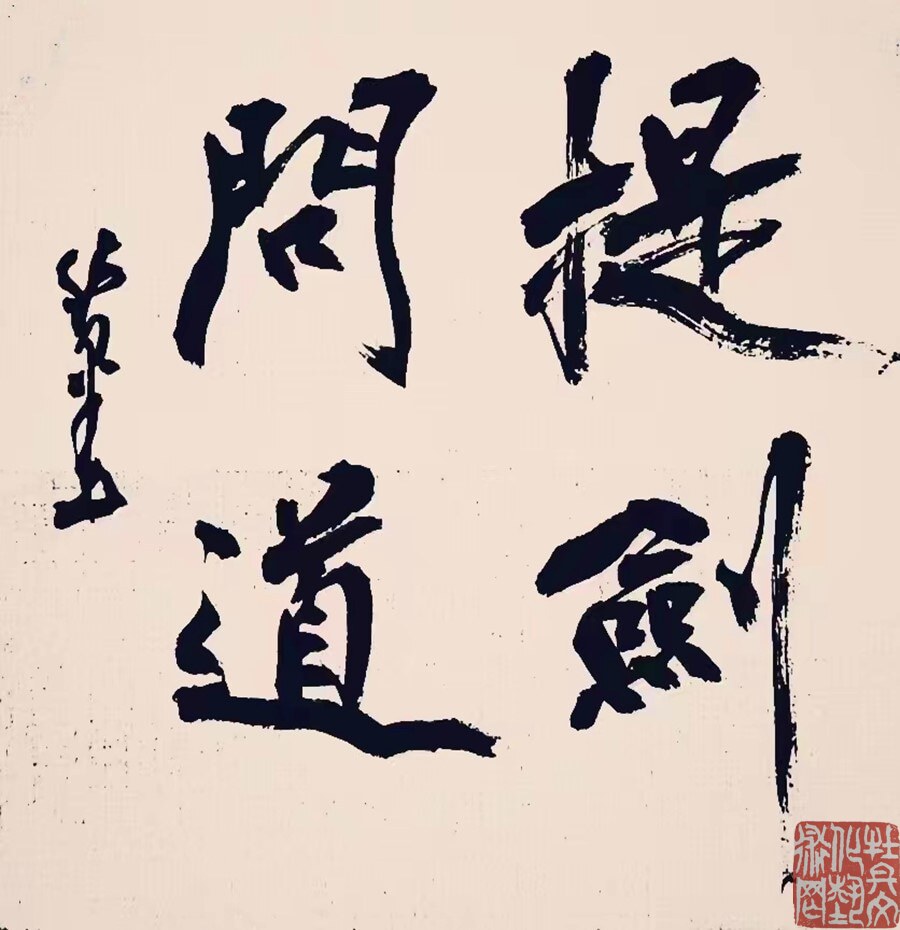 提劍
問道